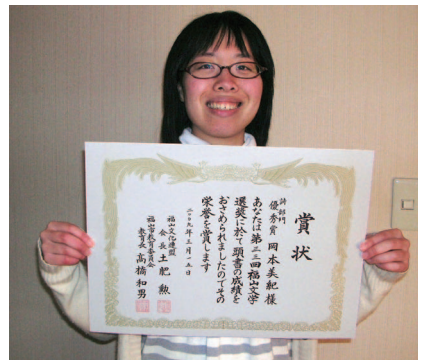 賞状
詩部門
優秀賞 岡本美紀様
あなたは第二三回福山文学
選奨に於て頭書の成績を
おさめられましたのでその
栄誉を賞します
二〇〇九年三月一五日
福山文化連盟
会長 土肥 勲
福山市教育委員会
教育長 高橋和男